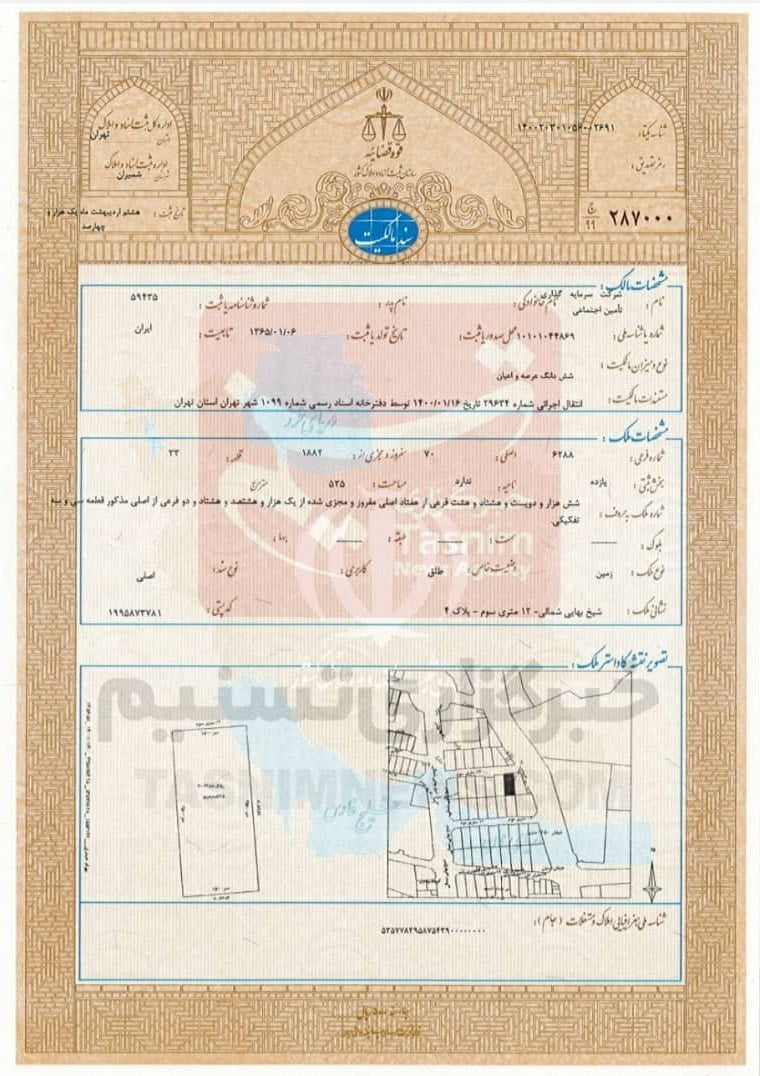 شناسه یکتا: ۱۴۰۰۲۰۳۰۱۰۵۶۰۰۲۶۹۱
رمز تصدیق:
اداره کل ثبت اسناد و املاک
استان تهران
اداره ثبت اسناد و املاک
شهرستان شمیران
تاریخ ثبت: هشتم اردیبهشت ماه یک هزار و چهارصد
قوه قضائیه
سازمان ثبت اسناد و املاک کشور
سند مالکیت
ج ۹۹ ۲۸۷۰۰۰
مشخصات مالک:
نام: شرکت سرمایه گذاری تأمین اجتماعی نام خانوادگی: نام پدر: شماره شناسنامه یا ثبت: ۵۹۴۳۵
شماره یا شناسه ملی: ۱۰۱۰۱۰۴۴۸۶۹ محل صدور یا ثبت: تاریخ تولد یا ثبت: ۱۳۶۵/۰۱/۰۶ تابعیت: ایران
نوع و میزان مالکیت: شش دانگ عرصه و اعیان
مستندات مالکیت: انتقال اجرائی شماره ۲۹۶۳۴ تاریخ ۱۴۰۰/۰۱/۱۶ توسط دفترخانه اسناد رسمی شماره ۱۰۹۹ شهر تهران استان تهران
مشخصات ملک:
شماره فرعی: ۶۲۸۸ اصلی: ۷۰ مفروز و مجزی از: ۱۸۸۲ قطعه: ۳۳
بخش ثبتی: یازده ناحیه: ندارد مساحت: ۵۲۵ مترمربع
شماره ملک به حروف: شش هزار و دویست و هشتاد و هشت فرعی از هفتاد اصلی مفروز و مجزی شده از یک هزار و هشتصد و هشتاد و دو فرعی از اصلی مذکور قطعه سی و سه
تفکیکی
بلوک: سمت: طبقه:
نوع ملک: زمین وضعیت خاص: طلق کاربری: نوع سند: اصلی
نشانی ملک: شیخ بهایی شمالی- ۱۲ متری سوم - پلاک ۴ کد پستی: ۱۹۹۵۸۷۳۷۸۱
تصویر نقشه کاداستر ملک:
خبرگزاری تسنیم
Tasnim
News Agency
TASNIMNEWS.COM
دریای خزر
خلیج فارس
شناسه ملی جغرافیایی املاک و مستغلات (جام):
۵۳۵۷۷۸۲۹۵۸۷۵۴۲۹۰۰۰۰۰۰۰۰